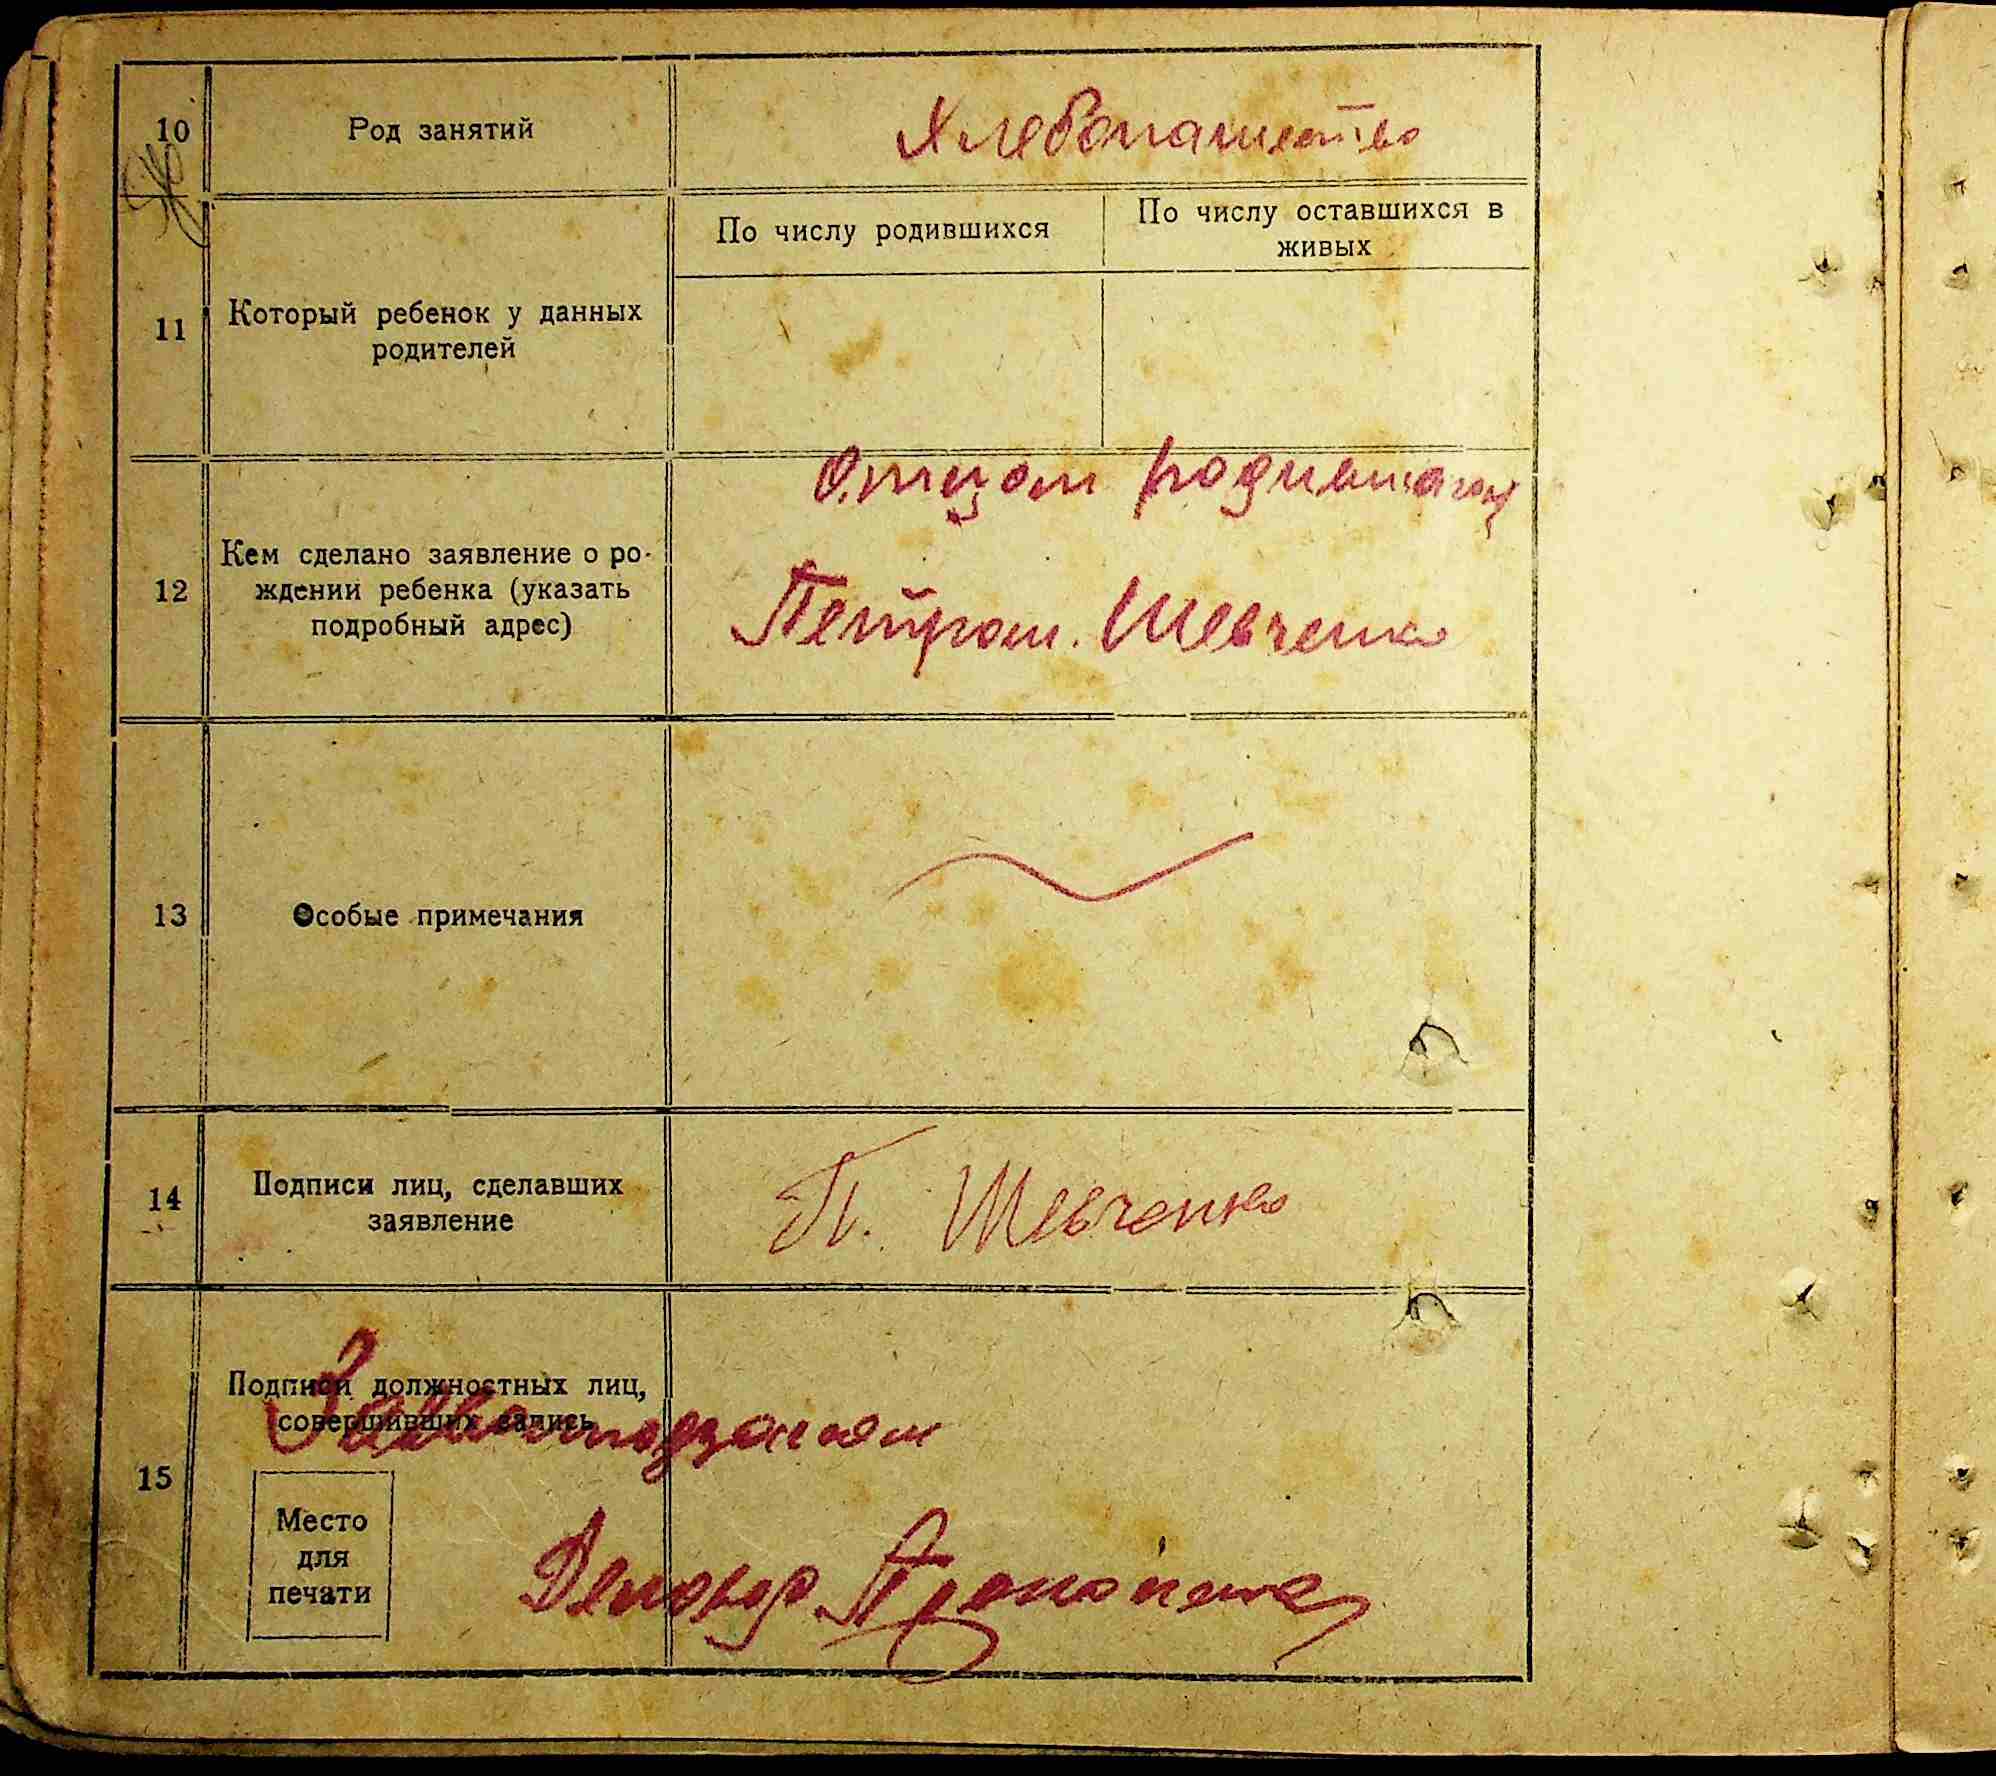 10
Род занятий
Хлебопашество
11
Который ребенок у данных
родителей
По числу родившихся
По числу оставшихся в
живых
12
Кем сделано заявление о ро-
ждении ребенка (указать
подробный адрес)
Отцом
Петром. Шевченко
13
Особые примечания
14
Подписи лиц, сделавших
заявление
П. Шевченко
15
Подписи должностных лиц,
совершивших запись
Место
для
печати
Делопр.